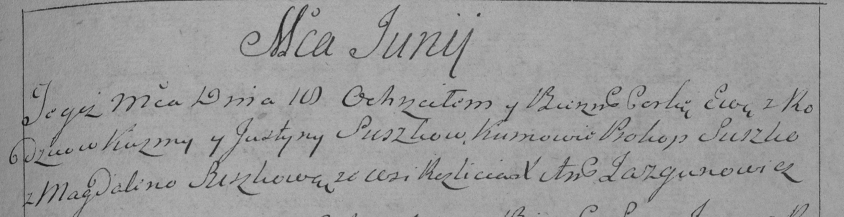 Mca Junij
Tegoż Mca Dnia 10 Ochrzciłem y Bierzm Corkę Ewę z Ro
dzicow Kuzmy y Justyny Suszkow, Kumowie Prokop Suszko
z Magdaleno Suszkową ze wsi X An Łazgunowicz